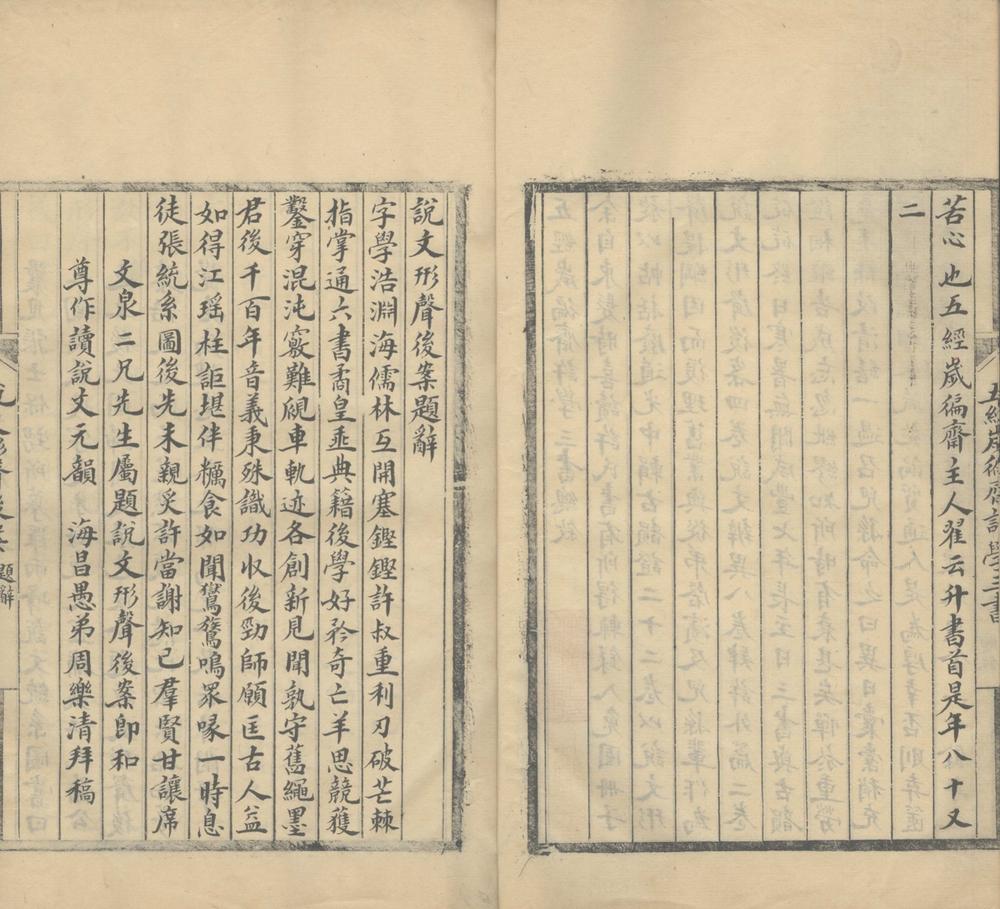 五經歲徧齋許學三書
苦心也五經歲徧齋主人翟云升書首是年八十又
二
說文形聲後案題辭
字學浩淵海儒林互開塞鏗鏗許叔重利刃破芒棘
指掌通六書矞皇垂典籍後學好矜奇亡羊思競獲
鑿穿混沌竅難覘車軌迹各創新見聞孰守舊繩墨
君後千百年音義秉殊識功收後勁師願匡古人益
如得江瑤柱詎堪伴糲食如聞鸑鷟鳴眾喙一時息
徒張統系圖後先未親炙許當謝知己羣賢甘讓席
文泉二兄先生屬題說文形聲後案即和
尊作讀說文元韻　海昌愚弟周樂清拜稿
題辭